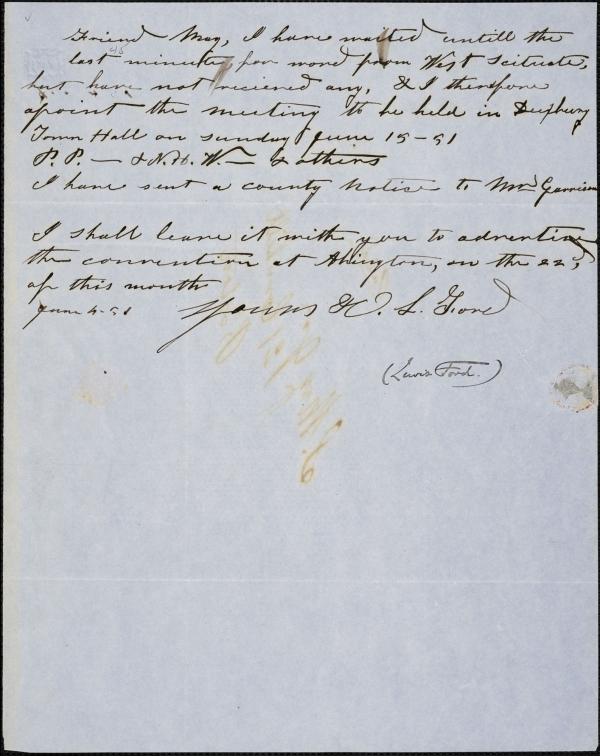 Friend May, I have waited untill the
last minute for word from West Scituate,
but have not recieved any, & I therefore
apoint the meeting to be held in Duxbury
Town Hall on sunday June 15-51
P. P. — & N. H. W. — & others
I have sent a county notice to Mr Garrison
I shall leave it with you to advertise
the convention at Abington, on the 22d,
of this month
June 4-51 Yours H. L. Ford
(Lewis Ford.)